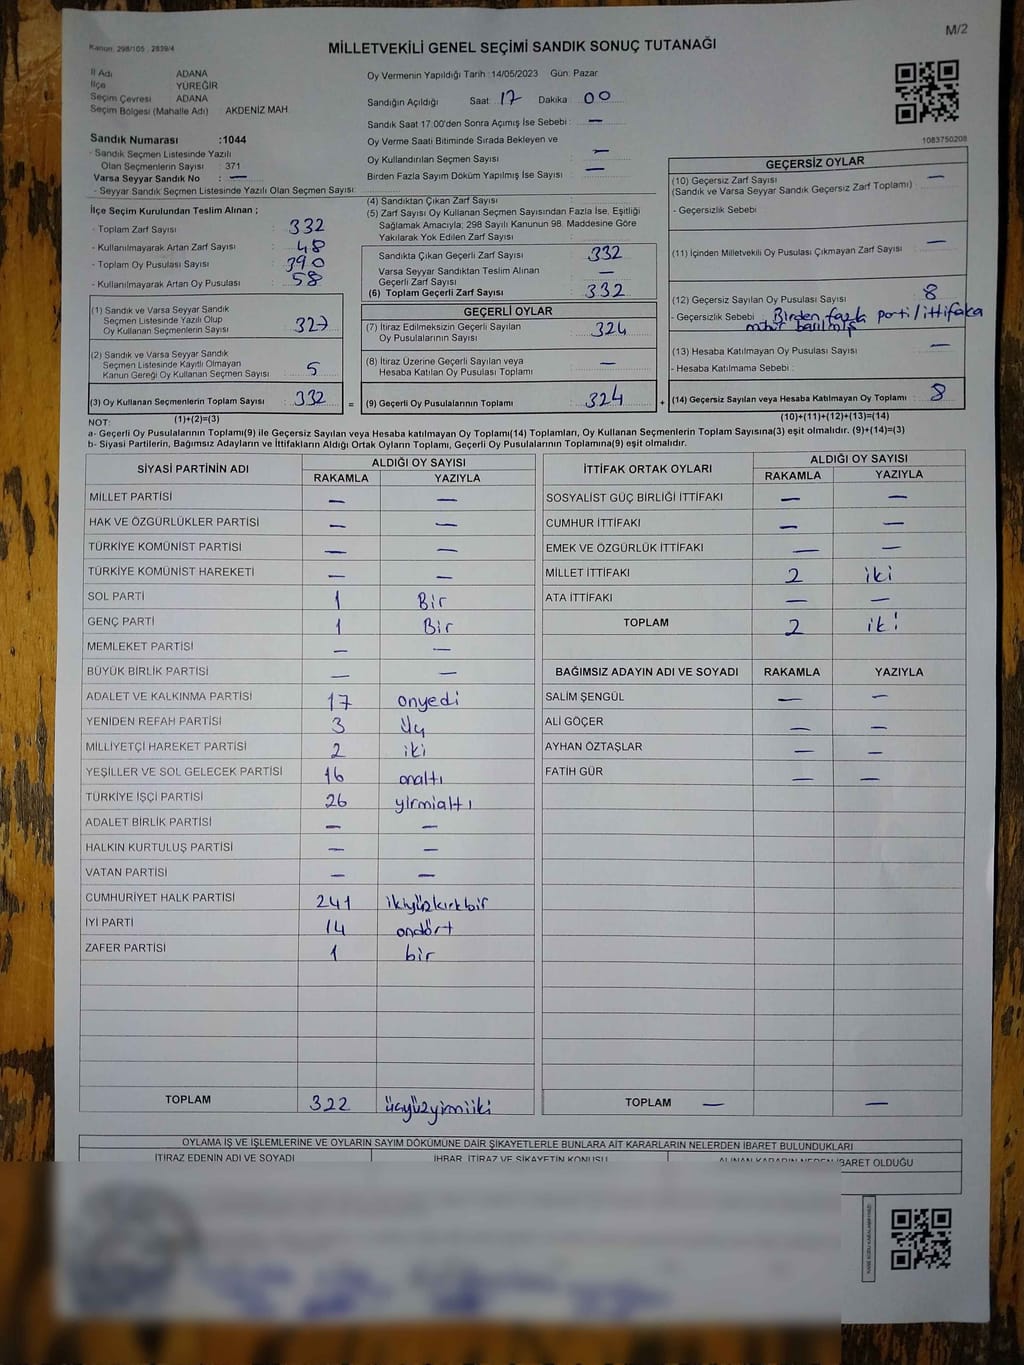 M/2
Kanun: 298/105 , 2839/4
MİLLETVEKİLİ GENEL SEÇİMİ SANDIK SONUÇ TUTANAĞI
İl Adı ADANA
İlçe YÜREĞİR
Seçim Çevresi ADANA
Seçim Bölgesi (Mahalle Adı) AKDENİZ MAH.
Oy Vermenin Yapıldığı Tarih :14/05/2023 Gün: Pazar
Sandığın Açıldığı Saat: 17 Dakika 00
Sandık Saat 17:00'den Sonra Açımış İse Sebebi : —
Oy Verme Saati Bitiminde Sırada Bekleyen ve
Oy Kullandırılan Seçmen Sayısı —
Birden Fazla Sayım Döküm Yapılmış İse Sayısı : —
1083750208
Sandık Numarası :1044
- Sandık Seçmen Listesinde Yazılı
Olan Seçmenlerin Sayısı : 371
Varsa Seyyar Sandık No : —
- Seyyar Sandık Seçmen Listesinde Yazılı Olan Seçmen Sayısı:
İlçe Seçim Kurulundan Teslim Alınan ;
- Toplam Zarf Sayısı : 332
- Kullanılmayarak Artan Zarf Sayısı : 48
- Toplam Oy Pusulası Sayısı : 390
- Kullanılmayarak Artan Oy Pusulası : 58
(1) Sandık ve Varsa Seyyar Sandık
Seçmen Listesinde Yazılı Olup
Oy Kullanan Seçmenlerin Sayısı : 327
(2) Sandık ve Varsa Seyyar Sandık
Seçmen Listesinde Kayıtlı Olmayan
Kanun Gereği Oy Kullanan Seçmen Sayısı : 5
(3) Oy Kullanan Seçmenlerin Toplam Sayısı : 332 =
(4) Sandıktan Çıkan Zarf Sayısı :
(5) Zarf Sayısı Oy Kullanan Seçmen Sayısından Fazla İse, Eşitliği
Sağlamak Amacıyla; 298 Sayılı Kanunun 98. Maddesine Göre
Yakılarak Yok Edilen Zarf Sayısı :
Sandıkta Çıkan Geçerli Zarf Sayısı : 332
Varsa Seyyar Sandıktan Teslim Alınan
Geçerli Zarf Sayısı : —
(6) Toplam Geçerli Zarf Sayısı : 332
GEÇERLİ OYLAR
(7) İtiraz Edilmeksizin Geçerli Sayılan
Oy Pusulalarının Sayısı : 324
(8) İtiraz Üzerine Geçerli Sayılan veya
Hesaba Katılan Oy Pusulası Toplamı : —
(9) Geçerli Oy Pusulalarının Toplamı : 324 +
GEÇERSİZ OYLAR
(10) Geçersiz Zarf Sayısı : —
(Sandık ve Varsa Seyyar Sandık Geçersiz Zarf Toplamı)
- Geçersizlik Sebebi
(11) İçinden Milletvekili Oy Pusulası Çıkmayan Zarf Sayısı : —
(12) Geçersiz Sayılan Oy Pusulası Sayısı : 8
- Geçersizlik Sebebi : Birden fazla parti/ittifaka
mühür basılmış
(13) Hesaba Katılmayan Oy Pusulası Sayısı : —
- Hesaba Katılmama Sebebi :
(14) Geçersiz Sayılan veya Hesaba Katılmayan Oy Toplamı : 8
NOT: (1)+(2)=(3)
(10)+(11)+(12)+(13)=(14)
a- Geçerli Oy Pusulalarının Toplamı(9) ile Geçersiz Sayılan veya Hesaba katılmayan Oy Toplamı(14) Toplamları, Oy Kullanan Seçmenlerin Toplam Sayısına(3) eşit olmalıdır. (9)+(14)=(3)
b- Siyasi Partilerin, Bağımsız Adayların ve İttifakların Aldığı Ortak Oyların Toplamı, Geçerli Oy Pusulalarının Toplamına(9) eşit olmalıdır.
SİYASİ PARTİNİN ADI ALDIĞI OY SAYISI
RAKAMLA YAZIYLA
MİLLET PARTİSİ — —
HAK VE ÖZGÜRLÜKLER PARTİSİ — —
TÜRKİYE KOMÜNİST PARTİSİ — —
TÜRKİYE KOMÜNİST HAREKETİ — —
SOL PARTİ 1 Bir
GENÇ PARTİ 1 Bir
MEMLEKET PARTİSİ — —
BÜYÜK BİRLİK PARTİSİ — —
ADALET VE KALKINMA PARTİSİ 17 onyedi
YENİDEN REFAH PARTİSİ 3 üç
MİLLİYETÇİ HAREKET PARTİSİ 2 iki
YEŞİLLER VE SOL GELECEK PARTİSİ 16 onaltı
TÜRKİYE İŞÇİ PARTİSİ 26 yirmialtı
ADALET BİRLİK PARTİSİ — —
HALKIN KURTULUŞ PARTİSİ — —
VATAN PARTİSİ — —
CUMHURİYET HALK PARTİSİ 241 ikiyüzkırkbir
İYİ PARTİ 14 ondört
ZAFER PARTİSİ 1 bir
TOPLAM 322 üçyüzyirmiiki
İTTİFAK ORTAK OYLARI ALDIĞI OY SAYISI
RAKAMLA YAZIYLA
SOSYALİST GÜÇ BİRLİĞİ İTTİFAKI — —
CUMHUR İTTİFAKI — —
EMEK VE ÖZGÜRLÜK İTTİFAKI — —
MİLLET İTTİFAKI 2 iki
ATA İTTİFAKI — —
TOPLAM 2 iki
BAĞIMSIZ ADAYIN ADI VE SOYADI RAKAMLA YAZIYLA
SALİM ŞENGÜL — —
ALİ GÖÇER — —
AYHAN ÖZTAŞLAR — —
FATİH GÜR — —
TOPLAM — —
OYLAMA İŞ VE İŞLEMLERİNE VE OYLARIN SAYIM DÖKÜMÜNE DAİR ŞİKAYETLERLE BUNLARA AİT KARARLARIN NELERDEN İBARET BULUNDUKLARI
İTİRAZ EDENİN ADI VE SOYADI İHBAR, İTİRAZ VE ŞİKAYETİN KONUSU ALINAN KARARIN NEDEN İBARET OLDUĞU